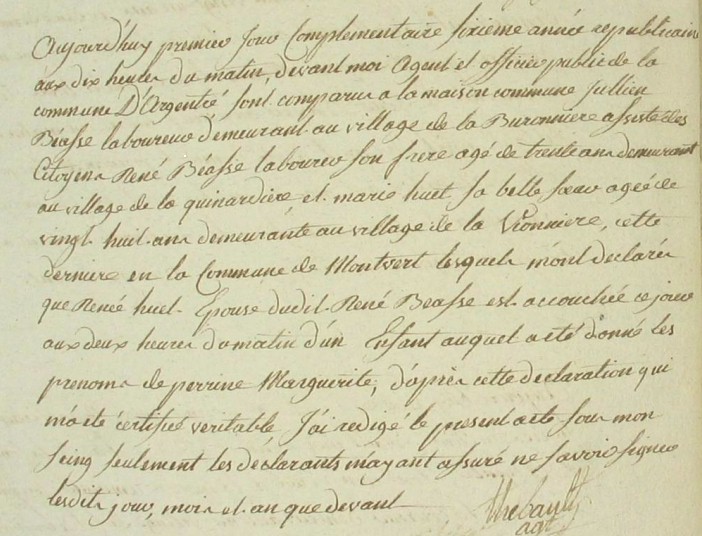 Aujourd'huy premier jour Complementaire sixieme année republicaine
aux dix heures du matin, devant moi Agent et officier public de la
commune D'Argentré sont comparus a la maison commune Jullien
Béasse laboureur demeurant au village de la Buronniere assisté des
Citoyens René Béasse laboureur son frere agé de trente ans demeurant
au village de la quinardiere et marie huet sa belle soeur ageé de
vingt huit ans demeurante au village de la Vionniere, cette
derniere en la Commune de Montvert lesquels m'ont declarés
que Renée huet Epouse dudit René Béasse est accouchée ce jour
aux deux heures du matin d'un Enfant auquel a eté donné les
prenoms de perrine Marguerite, d'après cette declaration qui
m'a eté certifié veritable J'ai redigé le present acte sous mon
seing seulement les declarants m'ayant assuré ne savoir signer
lesdits jour, mois et an que devant
Thebault
agt